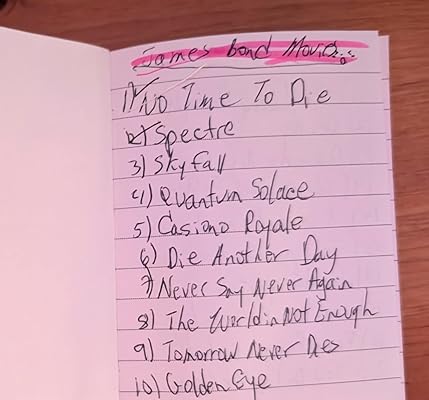 James bond Movies
1) No Time To Die
2) Spectre
3) Skyfall
4) Quantum Solace
5) Casiono Royale
6) Die Another Day
7) Never Say Never Again
8) The World in Not Enough
9) Tomorrow Never Dies
10) GoldenEye